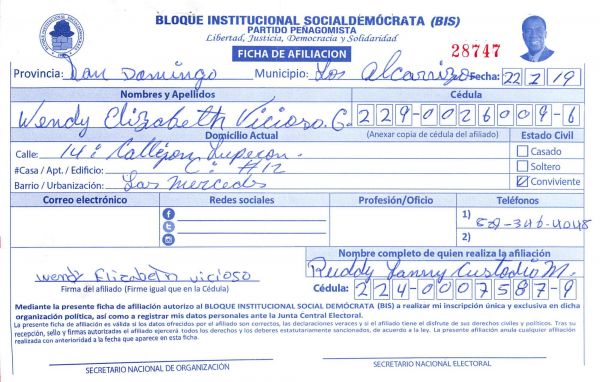 BLOQUE INSTITUCIONAL SOCIALDEMÓCRATA (BIS)
PARTIDO PEÑAGOMISTA
Libertad, Justicia, Democracia y Solidaridad
FICHA DE AFILIACION
28747
Provincia: San Domingo Municipio: Los Alcarrizos Fecha: 22 2 19
Nombres y Apellidos Cédula
Wendy Elizabeth Vicioso. G. 229-0026098-6
Domicilio Actual (Anexar copia de cédula del afiliado) Estado Civil
Calle: 14: Callejon Luperon. Casado
#Casa / Apt. / Edificio: C: #12 Soltero
Barrio / Urbanización: Las Mercedes Conviviente
Correo electrónico Redes sociales Profesión/Oficio Teléfonos
1) 829-346-4048
2)
Nombre completo de quien realiza la afiliación
Wendy Elizabeth Vicioso Ruddy Fanny Custodio M.
Firma del afiliado (Firme igual que en la Cédula) Cédula: 224-0007587-9
Mediante la presente ficha de afiliación autorizo al BLOQUE INSTITUCIONAL SOCIAL DEMÓCRATA (BIS) a realizar mi inscripción única y exclusiva en dicha
organización política, así como a registrar mis datos personales ante la Junta Central Electoral.
La presente ficha de afiliación es válida si los datos ofrecidos por el afiliado son correctos, las declaraciones veraces y si el afiliado tiene el disfrute de sus derechos civiles y políticos. Tras su
recepción, sello y firmas autorizadas el afiliado ejercerá todos los derechos y los deberes estatutariamente sancionados, de acuerdo a la ley. La presente afiliación anula cualquier afiliación
realizada con anterioridad a la fecha que aparece en esta ficha.
SECRETARIO NACIONAL DE ORGANIZACIÓN SECRETARIO NACIONAL ELECTORAL